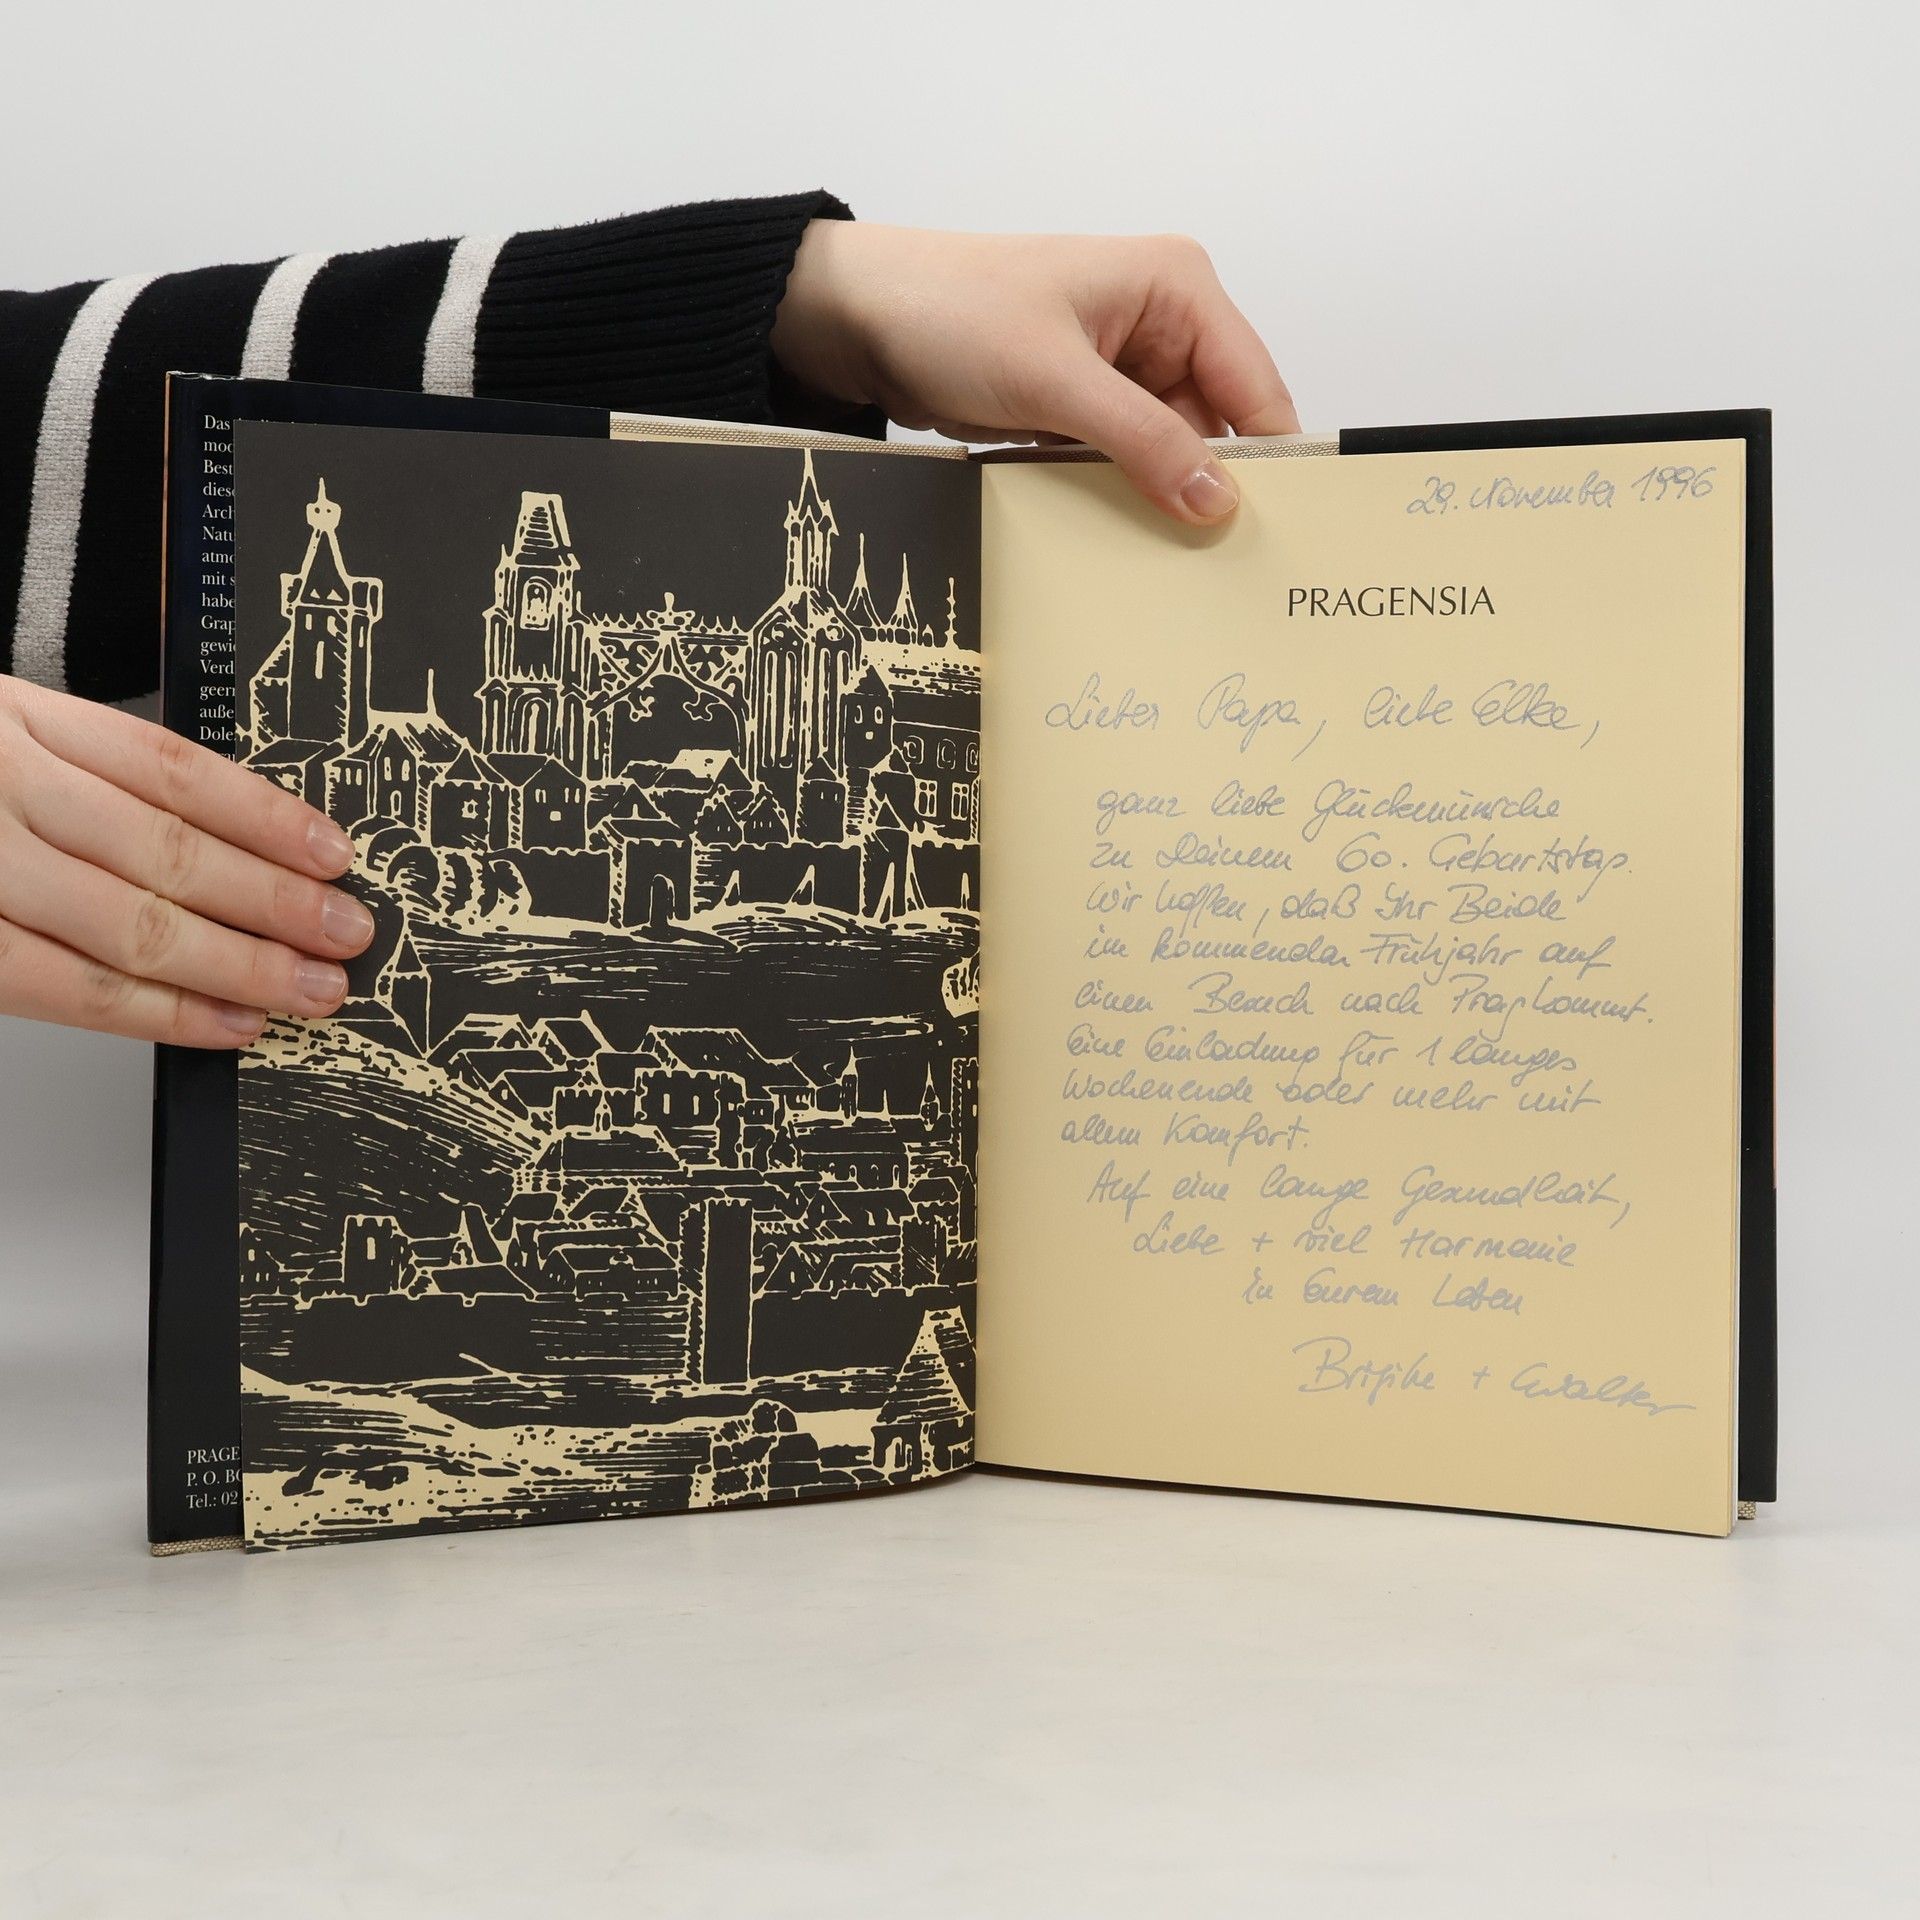 Das
mod
Best
dies
Arch
Natu
atmo
mit s
habe
Grap
gewi
Verd
geer
auße
Dole
PRAGE
P. O. BO
Tel.: 02
29. November 1996
PRAGENSIA
Lieber Papa, liebe Elke,
ganz liebe Glückwünsche
zu Deinem 60. Geburtstag.
Wir hoffen, daß Ihr Beide
im kommenden Frühjahr auf
einen Besuch nach Prag kommt.
Eine Einladung für 1 langes
Wochenende oder mehr mit
allem Komfort.
Auf eine lange Gesundheit,
Liebe + viel Harmonie
in Eurem Leben
Brigitte + Ewalter